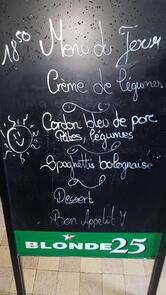 18€50 Menu du Jour
Crème de légumes
Cordon bleu de porc
Pâtes, légumes
Spaghettis bolognaise
Dessert
Bon Appetit
BLONDE 25